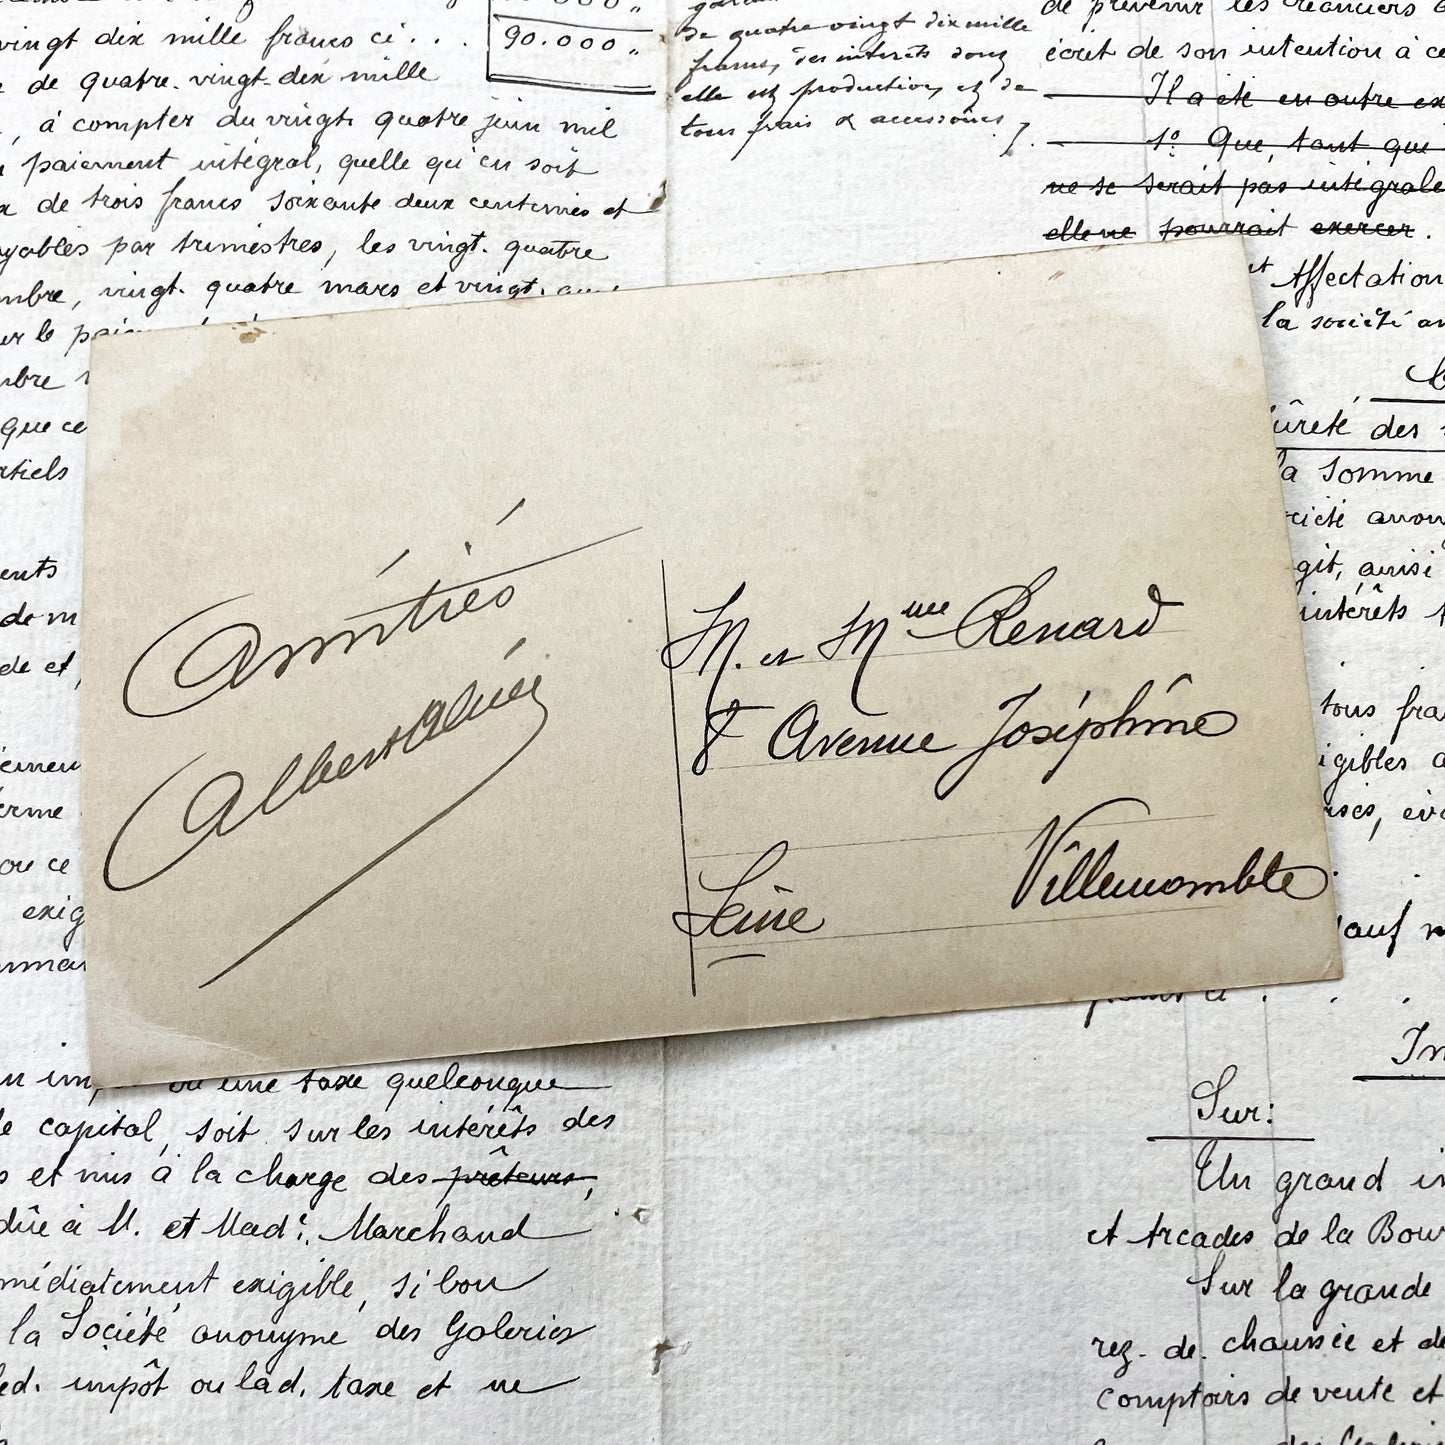 90.000 "
vingt dix mille francs ci . . .
de quatre-vingt-dix mille
, à compter du vingt quatre juin mil
paiement intégral, quelle qu'en soit
de trois francs soixante deux centimes et
par trimestres, les vingt-quatre
mbre, vingt-quatre mars et vingt-
ur le
mbre
que ce
rtiels
ents
de m
de et,
erme
ou ce
exig
de quatre vingt dix mille
francs, des intérêts dont
elle est productive, et de
tous frais & accessoires
de prévenir les créanciers
écrit de son intention à ce
Il a été en outre
1° Que, tant que
ne se serait pas intégrale
elle ne pourrait exercer.
Affectation
la société an
ûreté des
la somme
ciété anon
git, ainsi
intérêts
tous fra
igibles
sauf
Amitiés
Albert
M. et Mme Renard
8 Avenue Joséphine
Seine Villemomble
ou une taxe quelconque
le capital, soit sur les intérêts des
s et mis à la charge des prêteurs,
dûe à M. et Made. Marchand
médiatement exigible, si bon
la Société anonyme des Galeries
led. impôt ou lad. taxe et ne
In
Sur:
Un grand
et Arcades de la Bour
Sur la grande
rez-de-chaussée et de
comptoirs de vente et